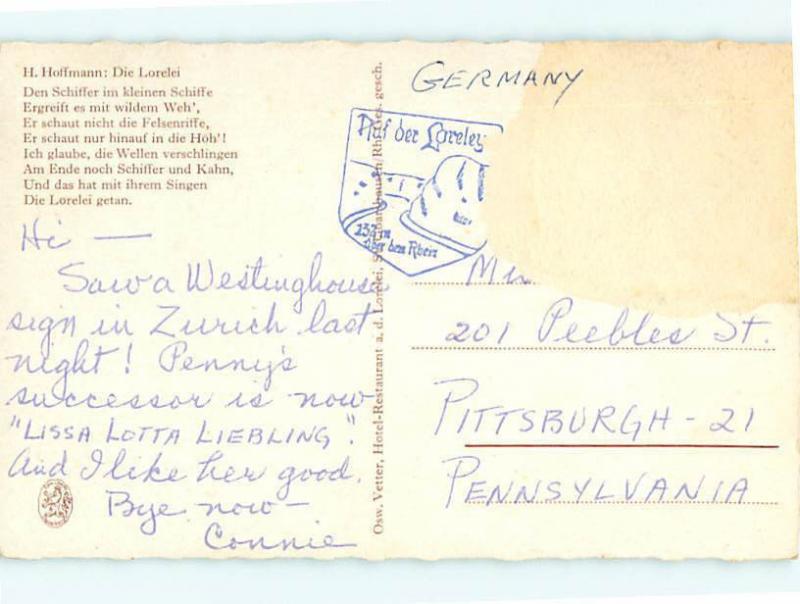 H. Hoffmann: Die Lorelei
Den Schiffer im kleinen Schiffe
Ergreift es mit wildem Weh',
Er schaut nicht die Felsenriffe,
Er schaut nur hinauf in die Höh'!
Ich glaube, die Wellen verschlingen
Am Ende noch Schiffer und Kahn,
Und das hat mit ihrem Singen
Die Lorelei getan.
Hi —
Saw a Westinghouse
sign in Zurich last
night! Penny's
successor is now
"LISSA LOTTA LIEBLING".
And I like her good.
Bye now —
Connie
Osw. Vetter, Hotel-Restaurant a. d. Lorelei, ges. gesch.
GERMANY
Auf der Loreley
132 m
über dem Rhein
201 Peebles St.
PITTSBURGH - 21
PENNSYLVANIA